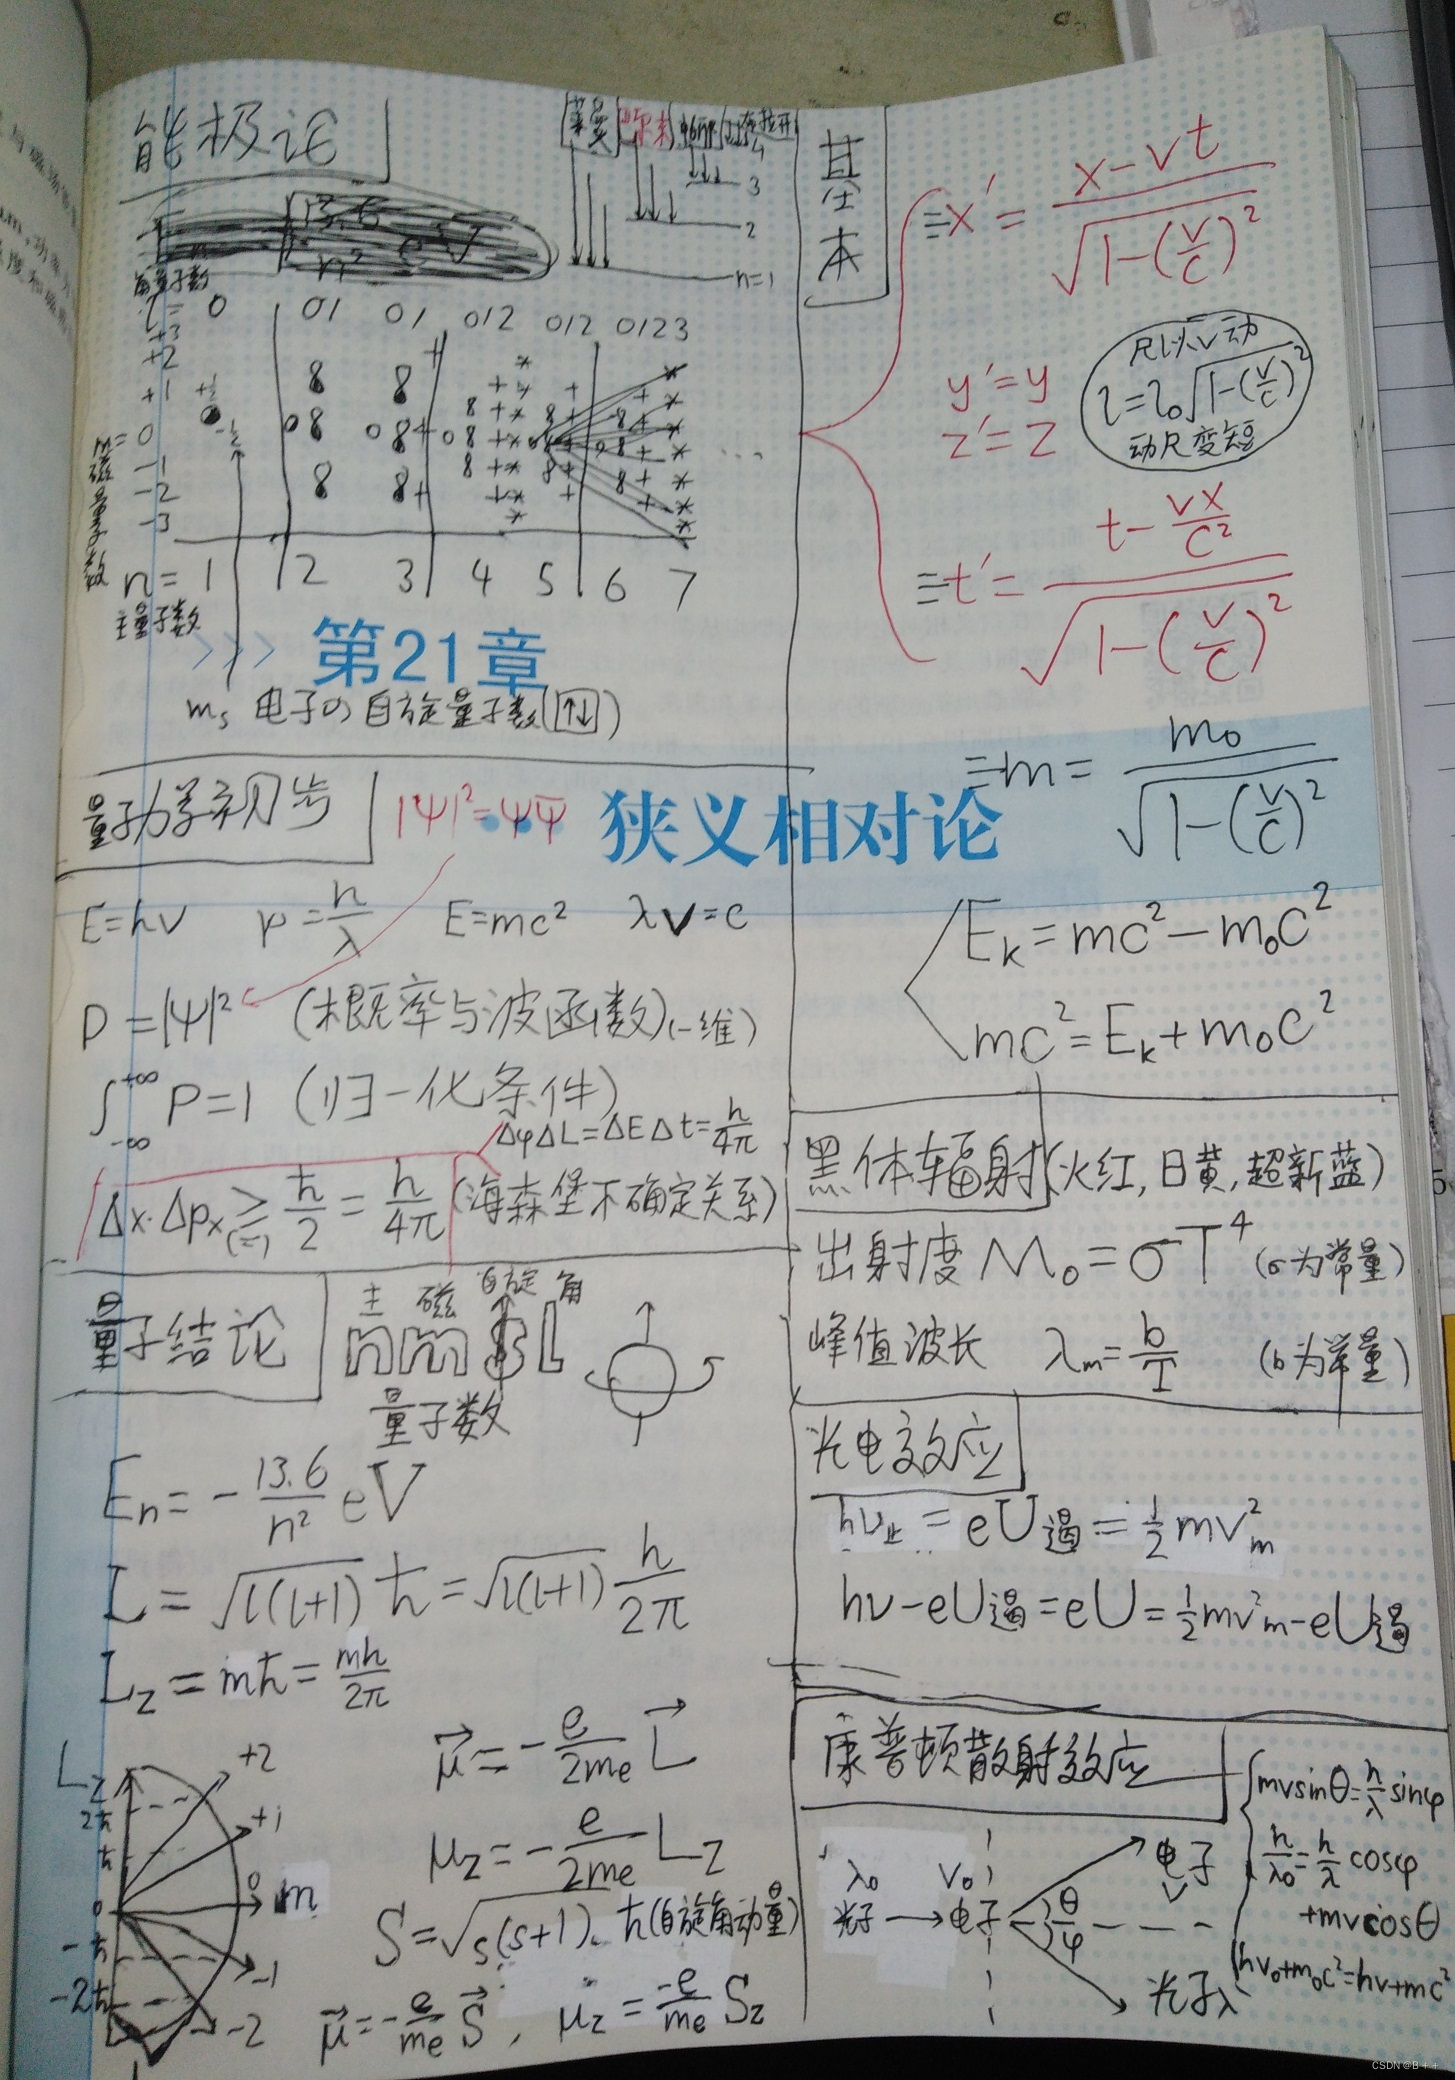 能极论
n=1
2
3
角量子数
l= 0 01 01 012 012 0123
+3
+2
+1
0
-1
-2
-3
磁量子数
n= 1 2 3 4 5 6 7
主量子数
...
第21章
m_s 电子の自旋量子数(↑↓)
量子力学初步
|Ψ|²=ΨΨ̅
狭义相对论
E=hν p=h/λ E=mc² λν=c
P=|Ψ|² (概率与波函数)(一维)
∫_{-∞}^{+∞} P=1 (归一化条件)
ΔφΔL=ΔEΔt=h/4π
Δx·Δp_x ≥(=) ħ/2 = h/4π (海森堡不确定关系)
量子结论
主 磁 自旋 角
n m s l
量子数
E_n = -13.6/n² eV
L = √l(l+1) ħ = √l(l+1) h/2π
L_z = mħ = mh/2π
μ⃗ = -e/2m_e L⃗
μ_z = -e/2m_e L_z
S = √s(s+1) · ħ (自旋角动量)
μ⃗ = -e/m_e S⃗ , μ_z = -e/m_e S_z
L_z
2ħ
ħ
0
-ħ
-2ħ
+2
+1
0
m
-1
-2
基本
≡x' = (x-vt)/√1-(v/c)²
y'=y
z'=z
尺以v动
l=l₀√1-(v/c)²
动尺变短
≡t' = (t-vx/c²)/√1-(v/c)²
≡m = m₀/√1-(v/c)²
E_k = mc²-m₀c²
mc² = E_k+m₀c²
黑体辐射(火红,日黄,超新蓝)
出射度 M₀=σT⁴ (σ为常量)
峰值波长 λ_m=b/T (b为常量)
光电效应
hν止 = eU遏 = ½mv²_m
hν-eU遏=eU=½mv²_m-eU遏
康普顿散射效应
mvsinθ=h/λ sinφ
h/λ₀=h/λ cosφ
+mvcosθ
hν₀+m₀c²=hν+mc²
λ₀ V₀
光子→电子
θ
φ
电子
v
光子λ
CSDN @B++